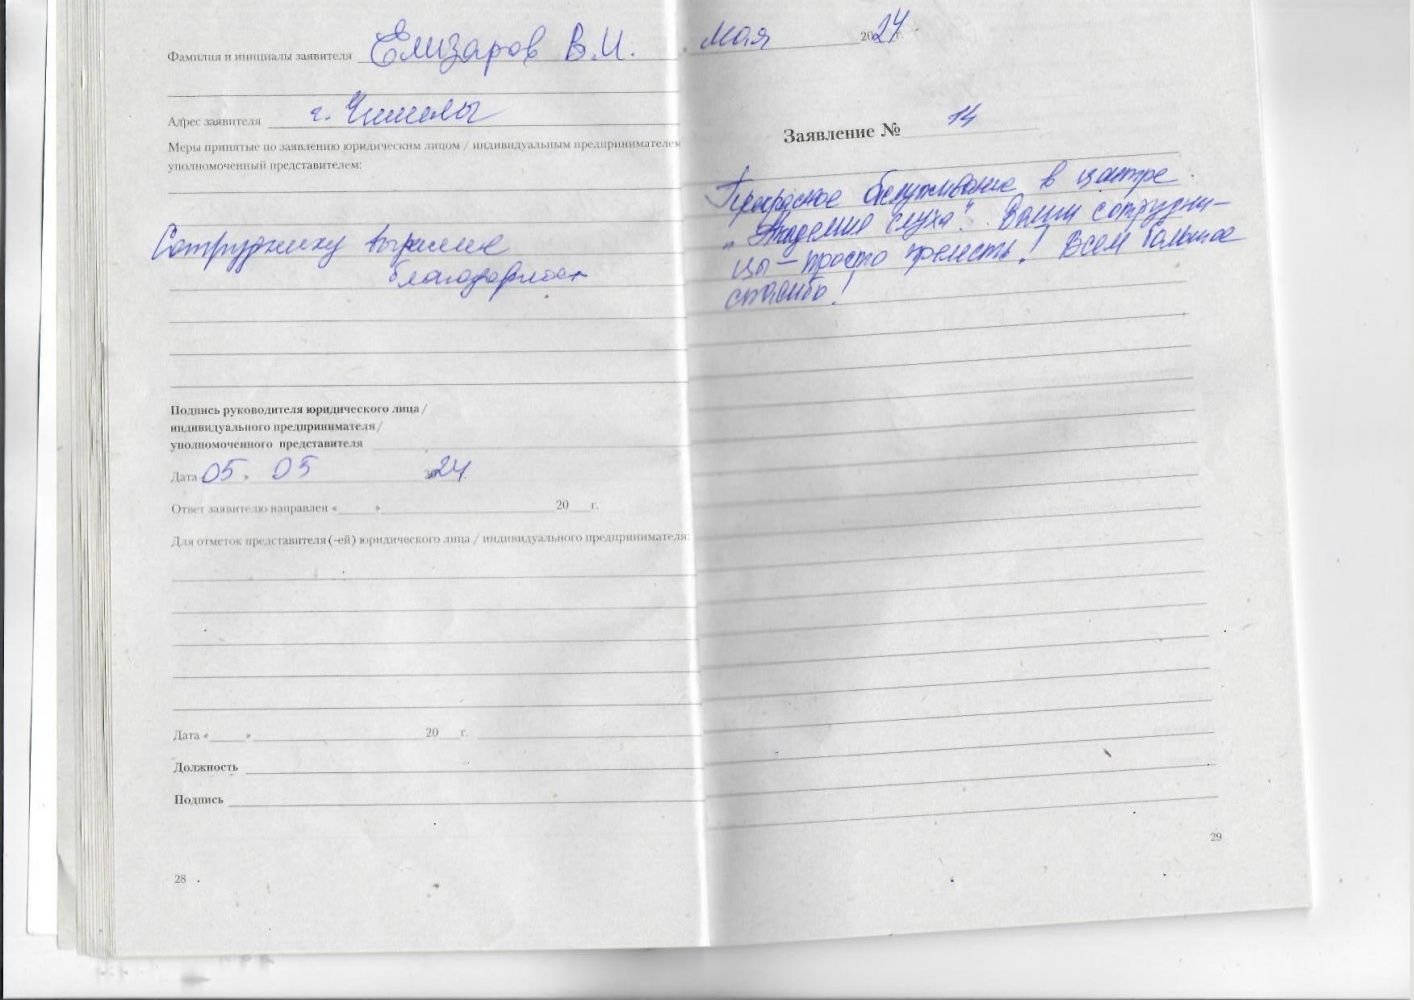 Фамилия и инициалы заявителя Елизаров В.И.
Адрес заявителя г.
Меры принятые по заявлению юридическим лицом / индивидуальным предпринимателем
уполномоченный представителем:
Сотруднику
благодарност
Подпись руководителя юридического лица /
индивидуального предпринимателя /
уполномоченного представителя
Дата 05. 05 24
Ответ заявителю направлен «____»____ 20__г.
Для отметок представителя (-ей) юридического лица / индивидуального предпринимателя:
Дата «____»____ 20__г.
Должность
Подпись
28
мая 2024 г.
Заявление № 14
Прекрасное обслуживание в центре
„Академия слуха". Ваши сотрудни-
цы – просто прелесть! Всем большое
спасибо!
29